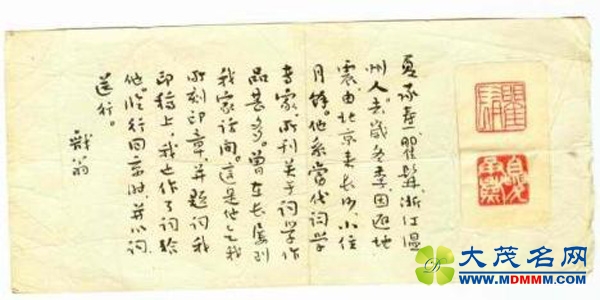 夏承焘一瞿髯，浙江温
州人。去岁冬季因避地
震，由北京来长沙，小住
月馀。他系当代词学
专家，所刊关于词学作
品甚多。曾在长屡到
我家访问。这是他乞我
所刻印章，并题词我
印稿上，我也作了词给
他。临行回京时，并以词
送行。
戡翁
瞿髯
夏承焘
大茂名网
MDMMM.COM